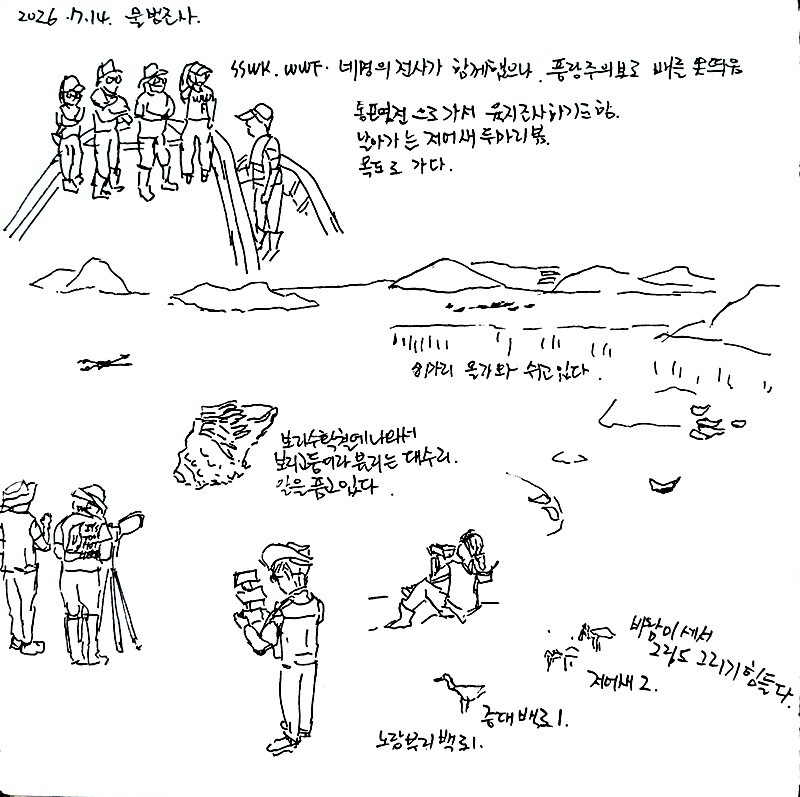 2026.7.14. 물범조사.
SSWK. WWF. 네명의 전사가 함께했으나, 풍랑주의보로 배를 못띄움
통포염전 으로 가서 육지조사하기로함.
날아가는 저어새 두마리봄.
목도로 가다.
8마리 올라와 쉬고있다.
보리수확철에 나와서
보리고둥이라 불리는 대수리.
알을 품고있다.
바람이 세서
그림도 그리기 힘들다.
저어새 2.
중대백로1.
노랑부리백로1.